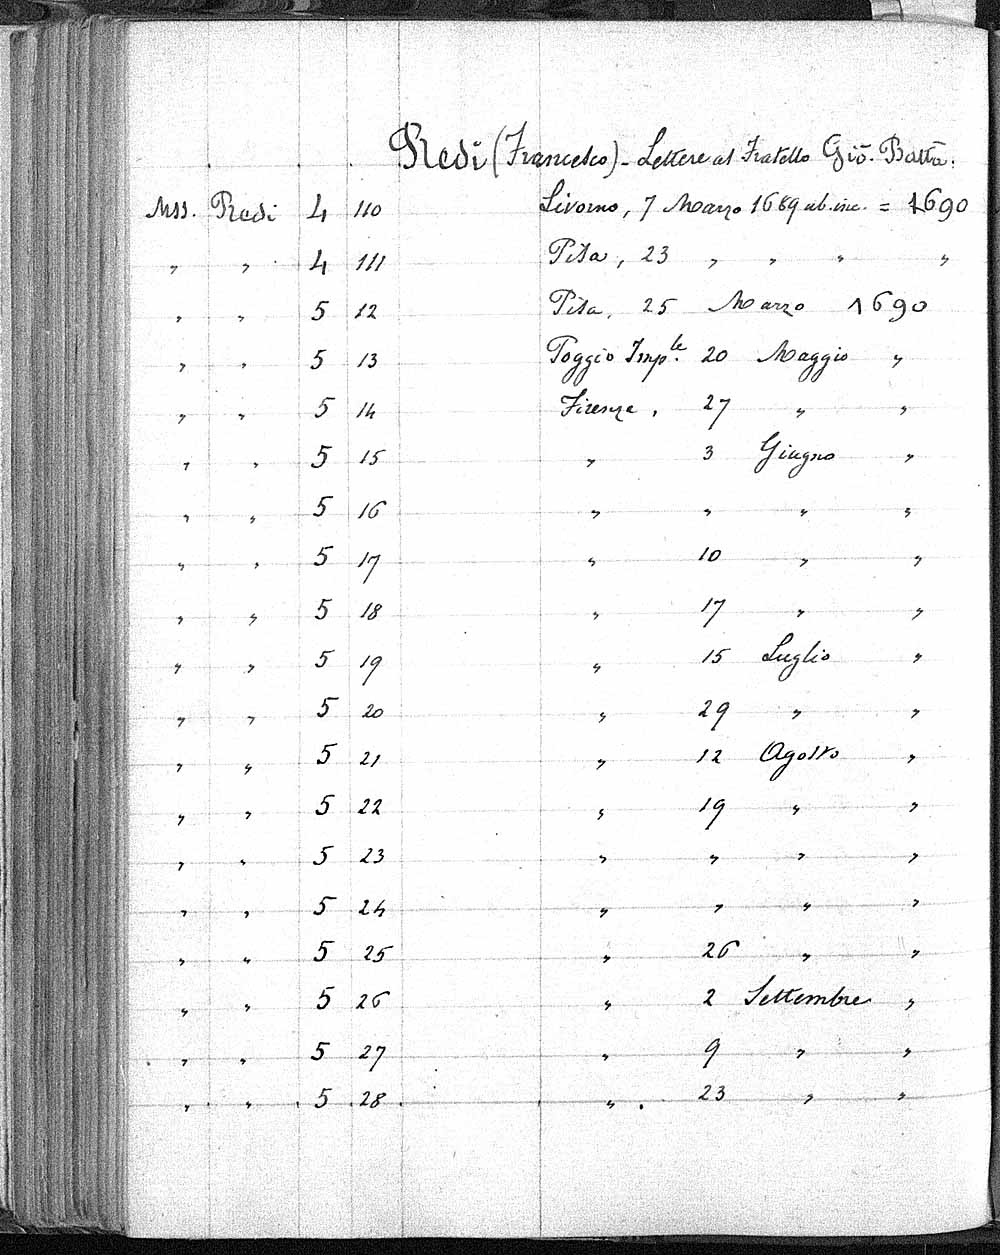 Redi (Francesco) - Lettere al Fratello Gio. Batta.
Mss. Redi 4 110 Livorno, 7 Marzo 1689 ab. inc. = 1690
" " 4 111 Pisa, 23 " " " "
" " 5 12 Pisa, 25 Marzo 1690
" " 5 13 Poggio Imp.le 20 Maggio "
" " 5 14 Firenze, 27 " "
" " 5 15 " 3 Giugno "
" " 5 16 " " " "
" " 5 17 " 10 " "
" " 5 18 " 17 " "
" " 5 19 " 15 Luglio "
" " 5 20 " 29 " "
" " 5 21 " 12 Agosto "
" " 5 22 " 19 " "
" " 5 23 " " " "
" " 5 24 " " " "
" " 5 25 " 26 " "
" " 5 26 " 2 Settembre "
" " 5 27 " 9 " "
" " 5 28 " 23 " "